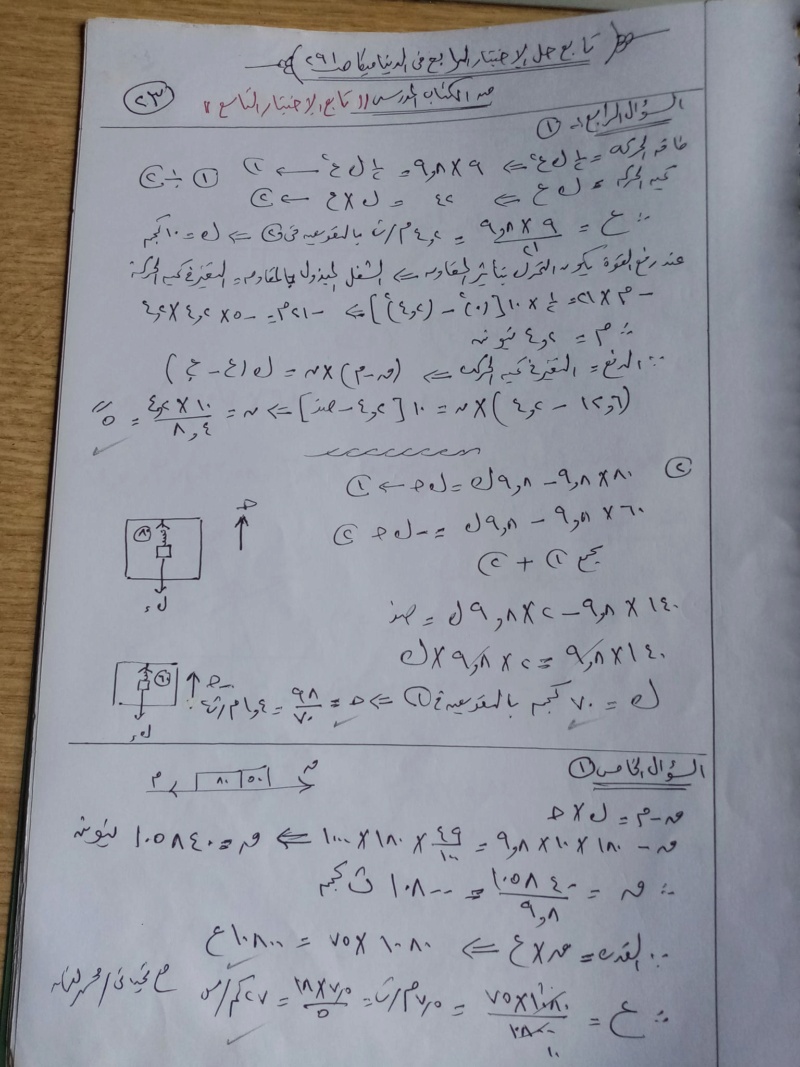 تابع حل الاختبار الرابع فى الديناميكا صـ ٢٩١
٢٣
من الكتاب المدرسى (( تابع الاختبار التاسع ))
السؤال الرابع :- ①
طاقة الحركة = ½ ك ع² ⇐ ٩ × ٩,٨ = ½ ك ع² ← ① ① ÷ ②
كمية الحركة = ك ع ⇐ ٤٢ = ك × ع ← ②
∴ ع = ٩ × ٩,٨ / ٢١ = ٤,٢ م/ث بالتعويض فى ② ⇐ ك = ١٠ كجم
عند رفع القوة يكون التحرك بتأثير المقاومة ⇐ الشغل المبذول بالمقاومة = التغير فى كمية الحركة
- م × ٢١ = ½ × ١٠ [(٠)² - (٤,٢)²] ⇐ - ٢١ م = - ٥ × ٤,٢ × ٤,٢
∴ م = ٤,٢ نيوتن
∵ الدفع = التغير فى كمية الحركة ⇐ (ق - م) × ن = ك (ع - ع)
(١٢,٦ - ٤,٢) × ن = ١٠ [٤,٢ - صفر] ⇐ ن = ١٠ × ٤,٢ / ٨,٤ = ٥ ث
② ٨٠ × ٩,٨ - ٩,٨ ك = ك حـ ← ①
٦٠ × ٩,٨ - ٩,٨ ك = - ك حـ ← ②
بجمع ① + ②
١٤٠ × ٩,٨ - ٢ × ٩,٨ ك = صفر
١٤٠ × ٩,٨ = ٢ × ٩,٨ × ك
ك = ٧٠ كجم بالتعويض فى ① ⇐ حـ = ٩٨ / ٧٠ = ١,٤ م/ث²
حـ
٨٠
ك ء
حـ
٦٠
ك ء
السؤال الخامس ①
م ٨٠ ٥٠ ق
ق - م = ك × حـ
ق - ١٨٠ × ١٠ × ٩,٨ = ٤٩ / ١٠٠ × ١٨٠ × ١٠٠٠ ⇐ ق = ١٠٥٨٤٠ نيوتن
∴ ق = ١٠٥٨٤٠ / ٩,٨ = ١٠٨٠٠ ث كجم
∵ القدرة = ق × ع ⇐ ١٠٨٠ × ٧٥ = ١٠٨٠٠ ع
∴ ع = ٧٥ × ١٠٨٠ / ١٠٨٠٠ = ٧,٥ م/ث = ٧,٥ × ١٨ / ٥ = ٢٧ كم/س
مع تحياتى /